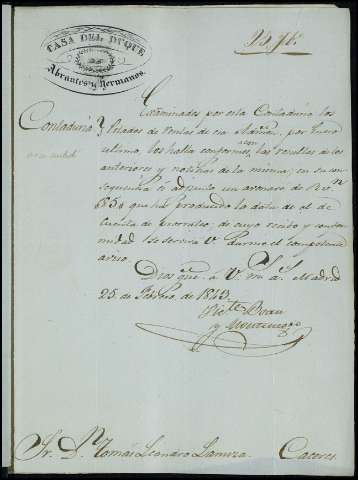 CASA DEL DUQUE
Abrantes y Hermanos.
Contaduria
Examinados por esta Contaduria los
Estados de Rentas de esa Admon, por Enero
ultimo, los halla conformes con las resultas de los
anteriores y noticias de la misma; en su con
secuencia es adjunto un
que ha producido la data de el de
cuenta de prorrateo, de cuyo recibo y confor
midad se servirá V. darme el competente
aviso.
Dios gue. a V. m. a. Madrid
25 de Febrero de 1843.
y Montenegro
Sr. Dn. Tomás Leonardo Caceres